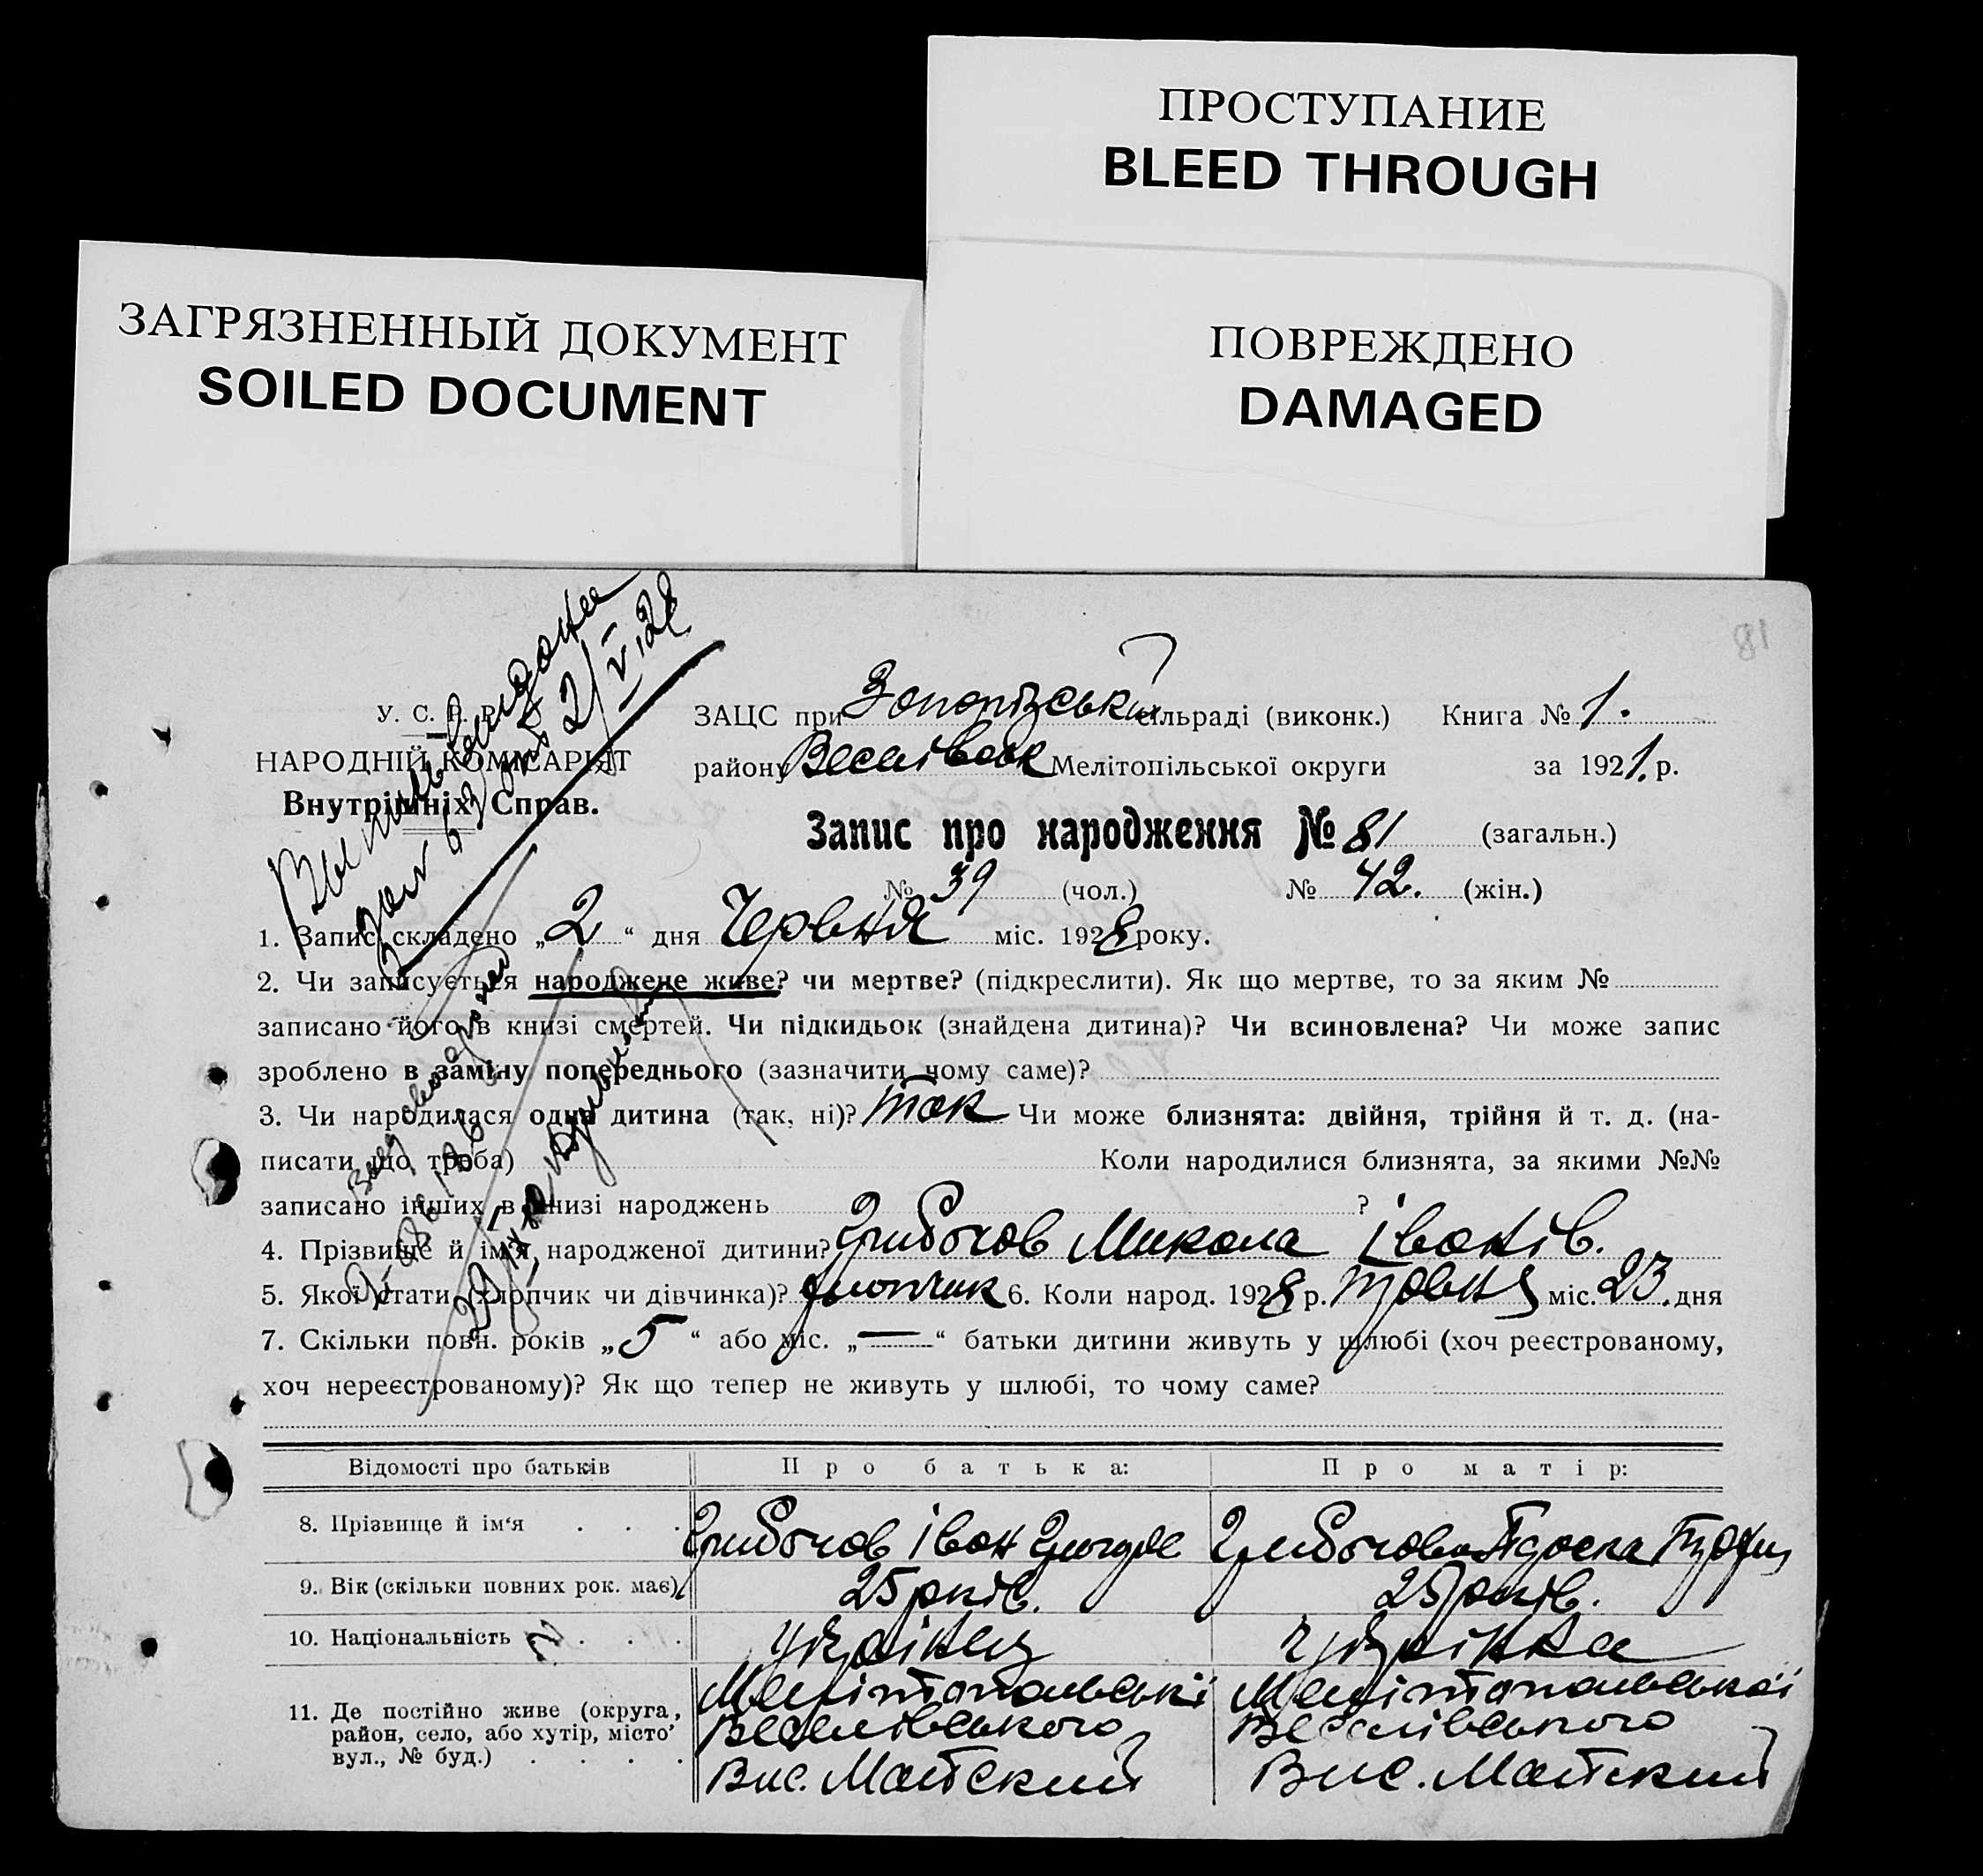 ПРОСТУПАНИЕ
BLEED THROUGH
ЗАГРЯЗНЕННЫЙ ДОКУМЕНТ
SOILED DOCUMENT
ПОВРЕЖДЕНО
DAMAGED
18
2/VI 28
У. С. Р. Р.
НАРОДНІЙ КОМІСАРІЯТ
Внутрішніх Справ.
ЗАЦС при сільраді (виконк.) Книга № 1.
району Веселівськ Мелітопільської округи за 1921. р.
Запис про народження № 81 (загальн.)
№ 39 (чол.) № 42. (жін.)
1. Запис складено „2“ дня Червня міс. 1928 року.
2. Чи записується народжене живе? чи мертве? (підкреслити). Як що мертве, то за яким №
записано його в книзі смертей. Чи підкидьок (знайдена дитина)? Чи всиновлена? Чи може запис
зроблено в заміну попереднього (зазначити чому саме)?
3. Чи народилася одна дитина (так, ні)? так Чи може близнята: двійня, трійня й т. д. (на-
писати що треба) Коли народилися близнята, за якими №№
записано інших в книзі народжень ?
4. Прізвище й ім‘я народженої дитини? Грибочов Микола Іванів.
5. Якої стати (хлопчик чи дівчинка)? хлопчик 6. Коли народ. 1928 р. травня міс. 23. дня
7. Скільки повн. років „5“ або міс. „—“ батьки дитини живуть у шлюбі (хоч реєстрованому,
хоч нереєстрованому)? Як що тепер не живуть у шлюбі, то чому саме?
Відомості про батьків Про батька: Про матір:
8. Прізвище й ім‘я . . . Грибочов Іван Грибочова
9. Вік (скільки повних рок. має) 25 років. 25 років.
10. Національність . . . українец українка
11. Де постійно живе (округа, Мелітопольські Мелітопольської
район, село, або хутір, місто Веселівського Веселівського
вул., № буд.) . . . . Вис. Майский Вис. Майский